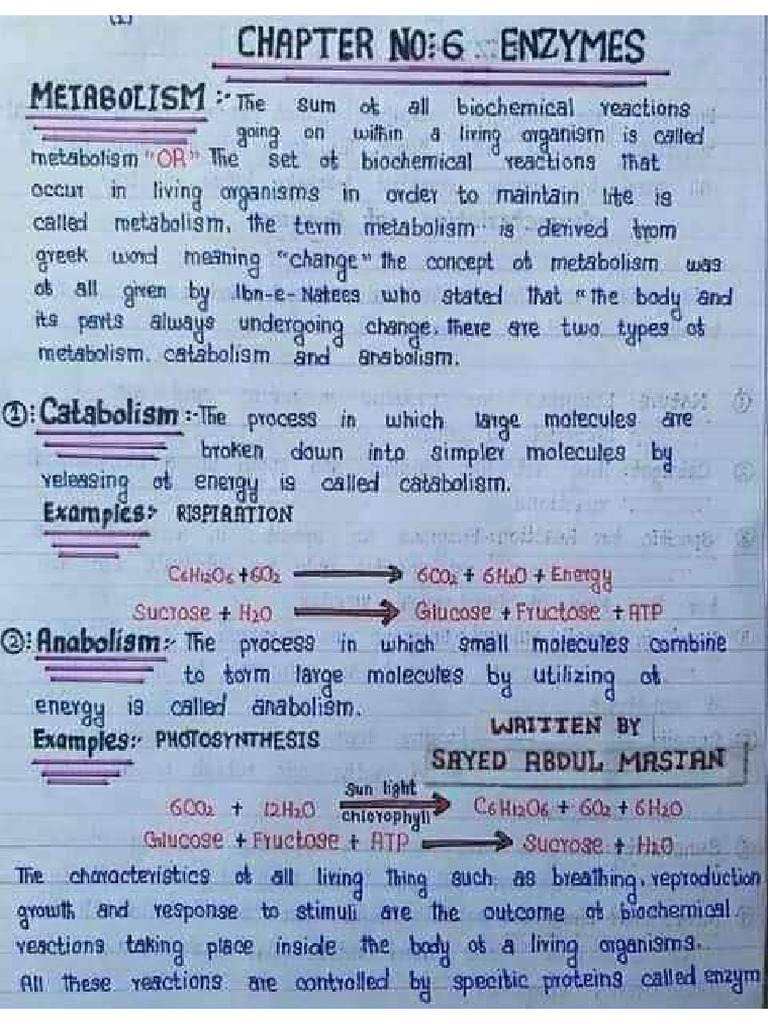 (1)
CHAPTER NO:6 ENZYMES
METABOLISM :- The sum of all biochemical reactions
going on within a living organism is called
metabolism "OR" The set of biochemical reactions that
occur in living organisms in order to maintain life is
called metabolism. the term metabolism is derived from
greek word meaning "change" the concept of metabolism was
of all given by Ibn-e-Nafees who stated that "the body and
its parts always undergoing change. there are two types of
metabolism. catabolism and anabolism.
①: Catabolism :- The process in which large molecules are
broken down into simpler molecules by
releasing of energy is called catabolism.
Examples:- RISPIRATION
C6H12O6 + 6O2 → 6CO2 + 6H2O + Energy
Sucrose + H2O → Glucose + Fructose + ATP
②: Anabolism:- The process in which small molecules combine
to form large molecules by utilizing of
energy is called anabolism.
WRITTEN BY
Examples:- PHOTOSYNTHESIS
SAYED ABDUL MASTAN
Sun light
6CO2 + 12H2O → C6H12O6 + 6O2 + 6H2O
chlorophyll
Glucose + Fructose + ATP → Sucrose + H2O
The characteristics of all living thing such as breathing, reproduction
growth and response to stimuli are the outcome of biochemical
reactions taking place inside the body of a living organisms.
All these reactions are controlled by specific proteins called enzym